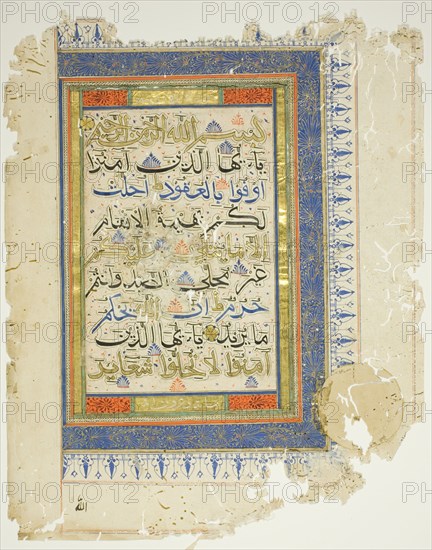 بسم الله الرحمن الرحيم
يايها الذين امنوا
اوفوا بالعقود احلت
لكم بهيمة الانعام
الا ما يتلى عليكم
غير محلي الصيد وانتم
حرم ان الله يحكم
ما يريد يايها الذين
امنوا لا تحلوا شعاير
الله
PHOTO 12